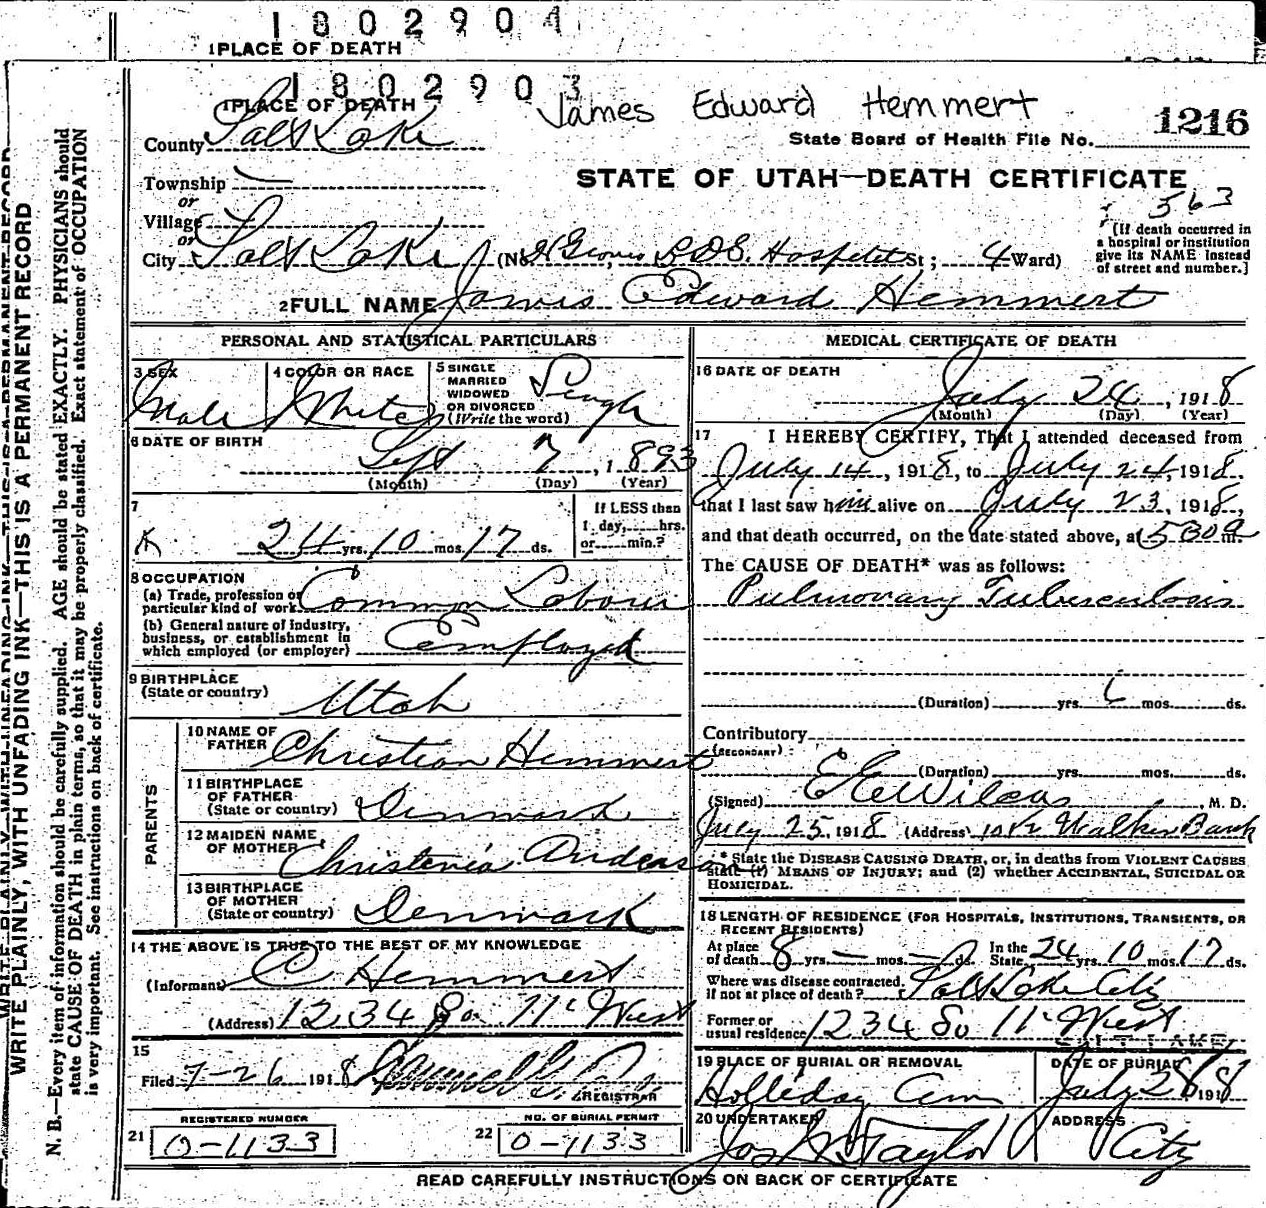 1802904
1 PLACE OF DEATH
1802903
1 PLACE OF DEATH
James Edward Hemmert
1216
State Board of Health File No.
County Salt Lake
STATE OF UTAH—DEATH CERTIFICATE
Township
or
Village
or
563
[If death occurred in
a hospital or institution
give its NAME instead
of street and number.]
City Salt Lake (No. Groves L.D.S. Hospital St; 4 Ward)
2 FULL NAME James Edward Hemmert
PERSONAL AND STATISTICAL PARTICULARS
3 SEX
Male
4 COLOR OR RACE
White
5 SINGLE
MARRIED
WIDOWED
OR DIVORCED
(Write the word)
Single
6 DATE OF BIRTH
Sept 7, 1893
(Month) (Day) (Year)
7
24 yrs. 10 mos. 17 ds.
If LESS than
1 day, hrs.
or min.?
8 OCCUPATION
(a) Trade, profession or
particular kind of work Common Laborer
(b) General nature of industry,
business, or establishment in
which employed (or employer) Employed
9 BIRTHPLACE
(State or country)
Utah
PARENTS
10 NAME OF
FATHER Christian Hemmert
11 BIRTHPLACE
OF FATHER
(State or country) Denmark
12 MAIDEN NAME
OF MOTHER Christenia Anderson
13 BIRTHPLACE
OF MOTHER
(State or country) Denmark
14 THE ABOVE IS TRUE TO THE BEST OF MY KNOWLEDGE
(Informant) C Hemmert
(Address) 1234 So 11" West
15
Filed 7-26 1918
REGISTRAR
REGISTERED NUMBER
21 0-1133
NO. OF BURIAL PERMIT
22 0-1133
MEDICAL CERTIFICATE OF DEATH
16 DATE OF DEATH
July 24, 1918
(Month) (Day) (Year)
17 I HEREBY CERTIFY, That I attended deceased from
July 14, 1918, to July 24, 1918
that I last saw him alive on July 23, 1918,
and that death occurred, on the date stated above, at 530 a m.
The CAUSE OF DEATH* was as follows:
Pulmonary Tuberculosis
(Duration) yrs. 6 mos. ds.
Contributory
(SECONDARY)
(Duration) yrs. mos. ds.
(Signed) E E Wilcox, M. D.
July 25, 1918 (Address) Walker Bank
* State the DISEASE CAUSING DEATH, or, in deaths from VIOLENT CAUSES
state (1) MEANS OF INJURY; and (2) whether ACCIDENTAL, SUICIDAL OR
HOMICIDAL.
18 LENGTH OF RESIDENCE (FOR HOSPITALS, INSTITUTIONS, TRANSIENTS, OR
RECENT RESIDENTS)
At place
of death 8 yrs. — mos. — ds.
In the
State 24 yrs. 10 mos. 17 ds.
Where was disease contracted,
if not at place of death? Salt Lake City
Former or
usual residence 1234 So 11" West
SALT LAKE
19 PLACE OF BURIAL OR REMOVAL
Holleday Cem
DATE OF BURIAL
July 28 1918
20 UNDERTAKER
Jos Wm Taylor
ADDRESS
City
READ CAREFULLY INSTRUCTIONS ON BACK OF CERTIFICATE
WRITE PLAINLY, WITH UNFADING INK—THIS IS A PERMANENT RECORD
N. B.—Every item of information should be carefully supplied. AGE should be stated EXACTLY. PHYSICIANS should
state CAUSE OF DEATH in plain terms, so that it may be properly classified. Exact statement of OCCUPATION
is very important. See instructions on back of certificate.